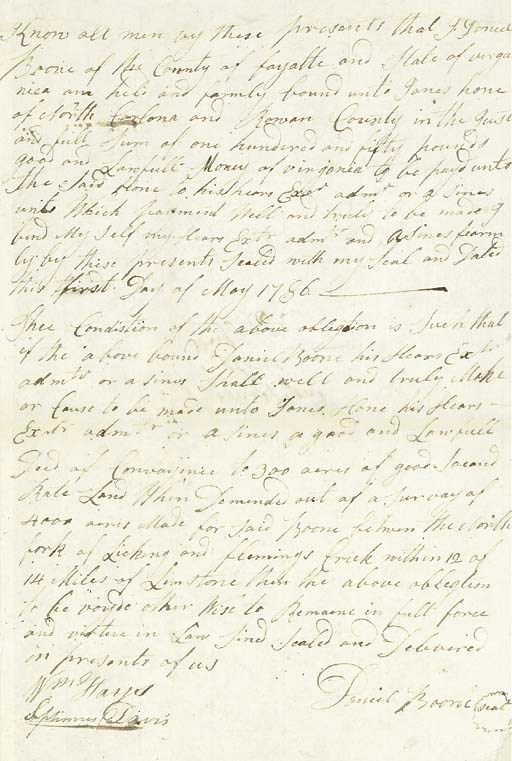 Know all men by these presents that I Daniel
Boone of the County of fayatte and State of virga
nica am held and farmly bound unto Jones hone
of North Carlona and Rowan County in the Just
and full Sum of one hundred and fifty pounds
good and Lawfull Money of virginia to be payd unto
the Said Hone to his Hears Exrs admrs or a sines
unto Which payment Well and truly to be made I
bind My Self my Hears Extr admtr and Asines fearm
ly by these presents Sealed with my Seal and Dated
this first Day of May 1786
Thee Condistion of the above oblegtion is Such that
if the above bound Daniel Boone his Hears Extr
admtr or a sines Shall well and truly Make
or Cause to be made unto Jones Hone his Hears
Extr admtr or a Sines a good and Lawfull
Deed of Convayince to 300 acres of good Secand
Rate Land When Demended out of a Survay of
4000 acres Made for Said Boone betwen the North
fork of Licking and fleemings Crick within 12 or
14 Miles of Limstone then the above oblegtion
to be voyde other Wise to Remaine in full force
and virtue in Law Sined Sealed and Delivered
in presents of us
Wm Hays
Septimus Davis
Daniel Boone Seal